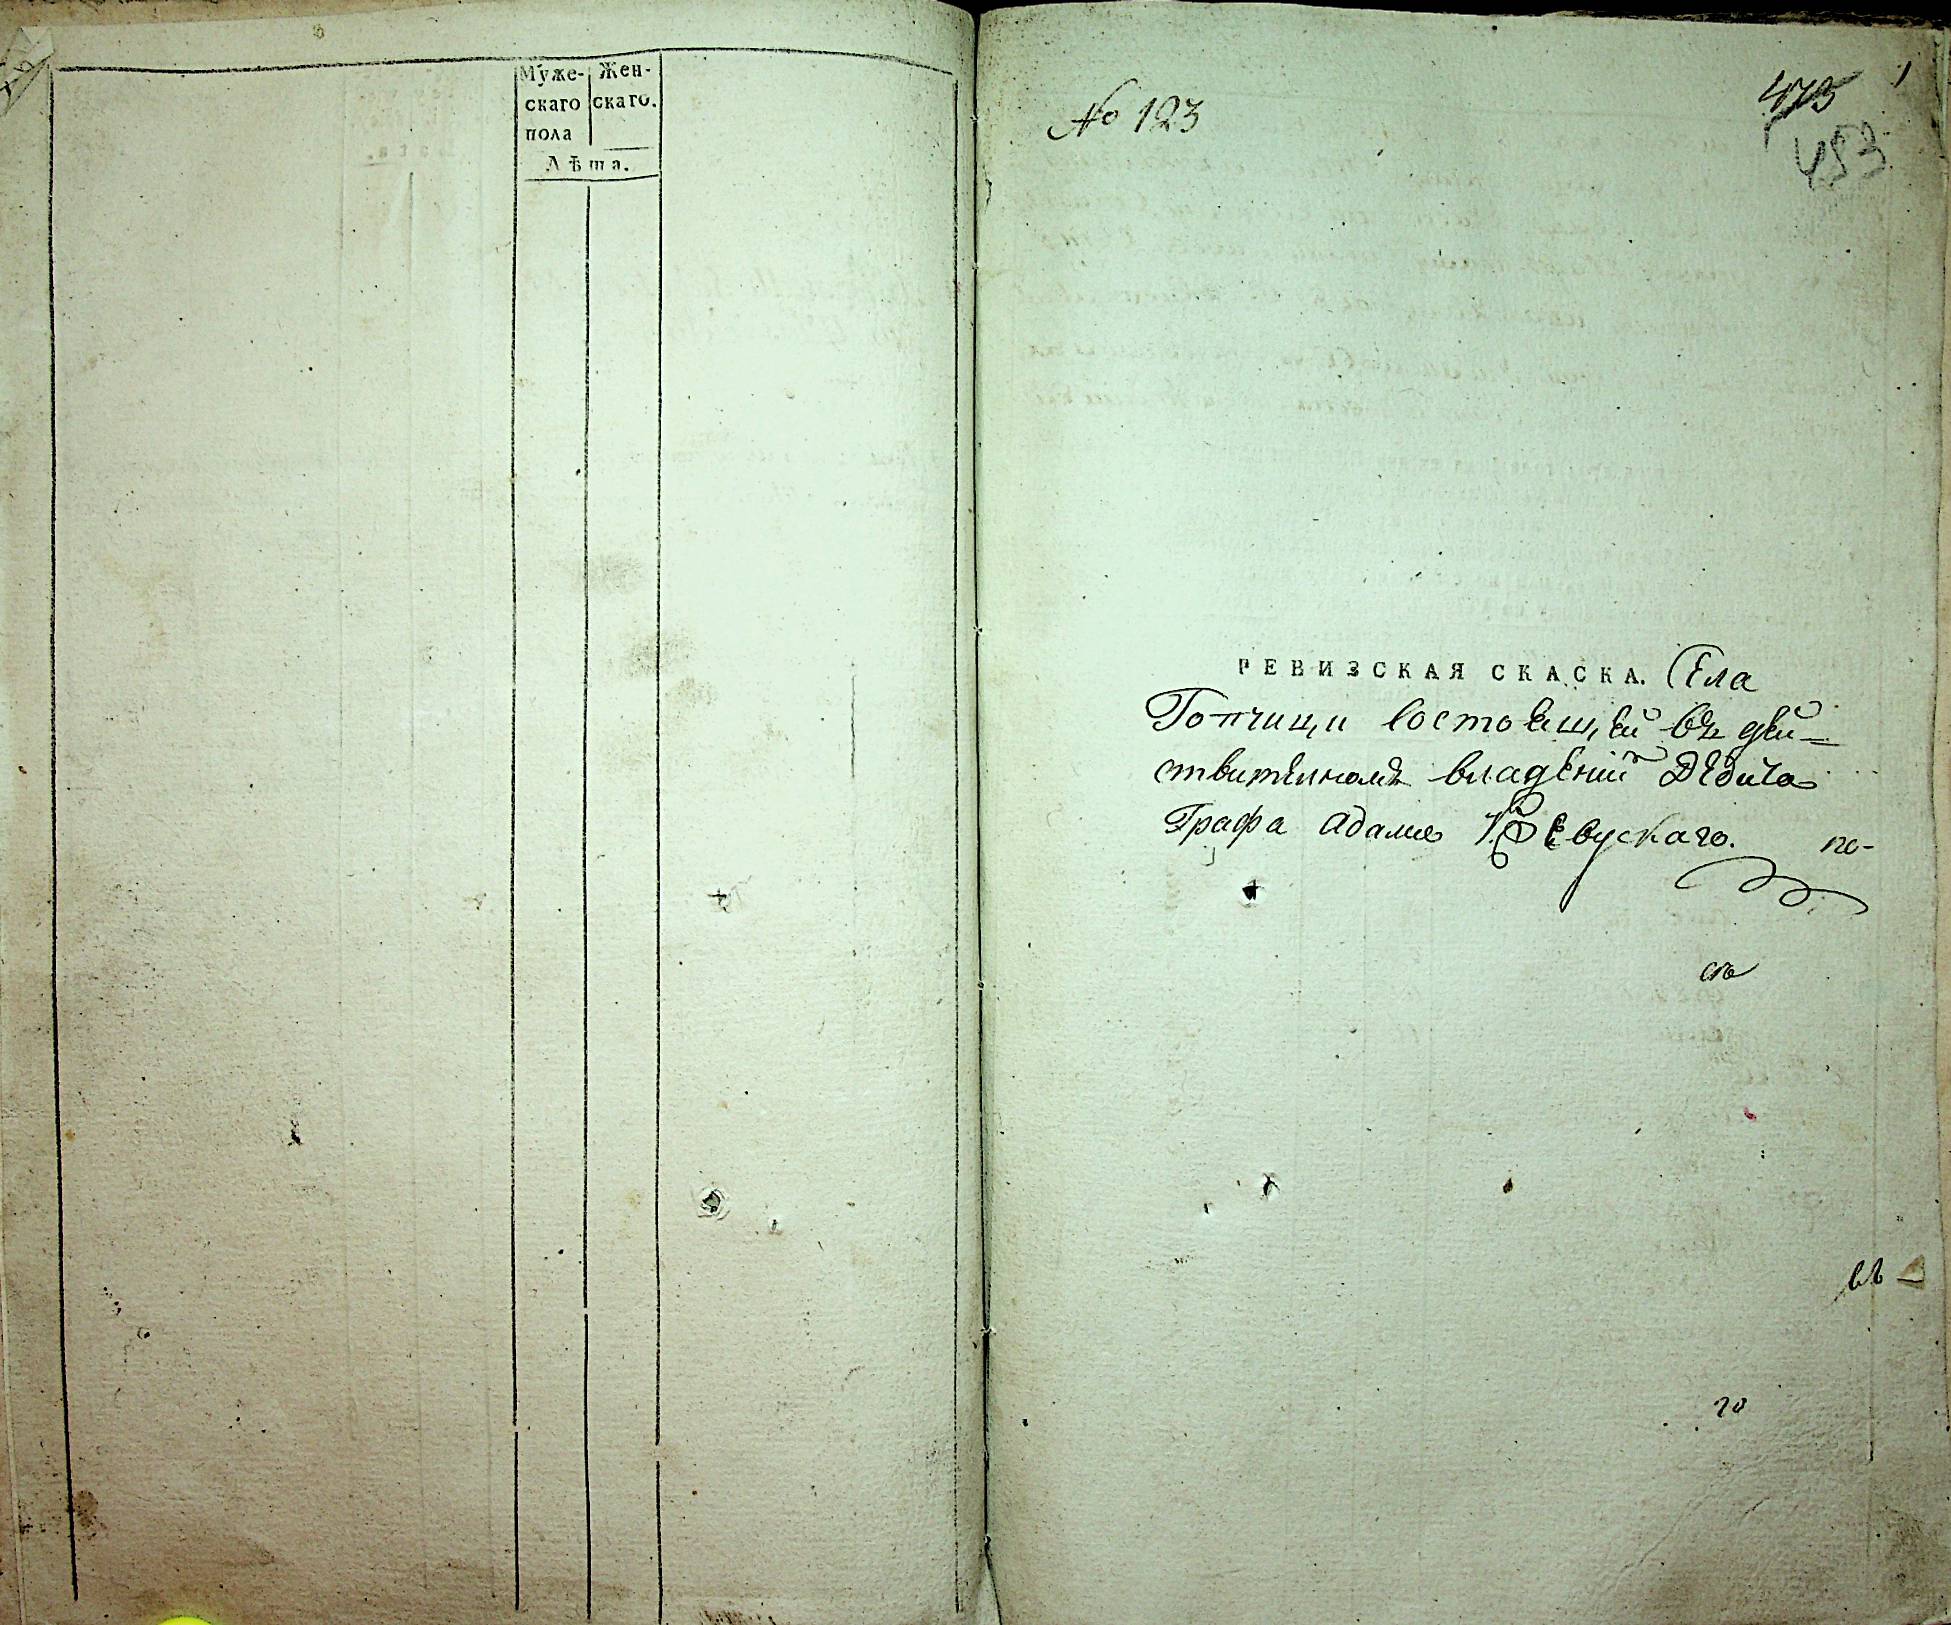 Муже- Жен-
скаго скаго.
пола
Лѣта.
№ 123
473
1
453
РЕВИЗСКАЯ СКАСКА. Села
Топчищи состоящей въ дѣй-
ствителномъ владѣнии Дѣдича
Графа Адама Ржевускаго. по-
съ
го